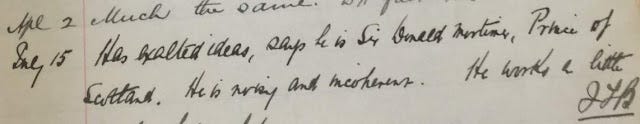 Apl 2 Much the same.
July 15 Has exalted ideas, says he is Sir Donald Mortimer, Prince of
Scotland. He is noisy and incoherent. He works a little